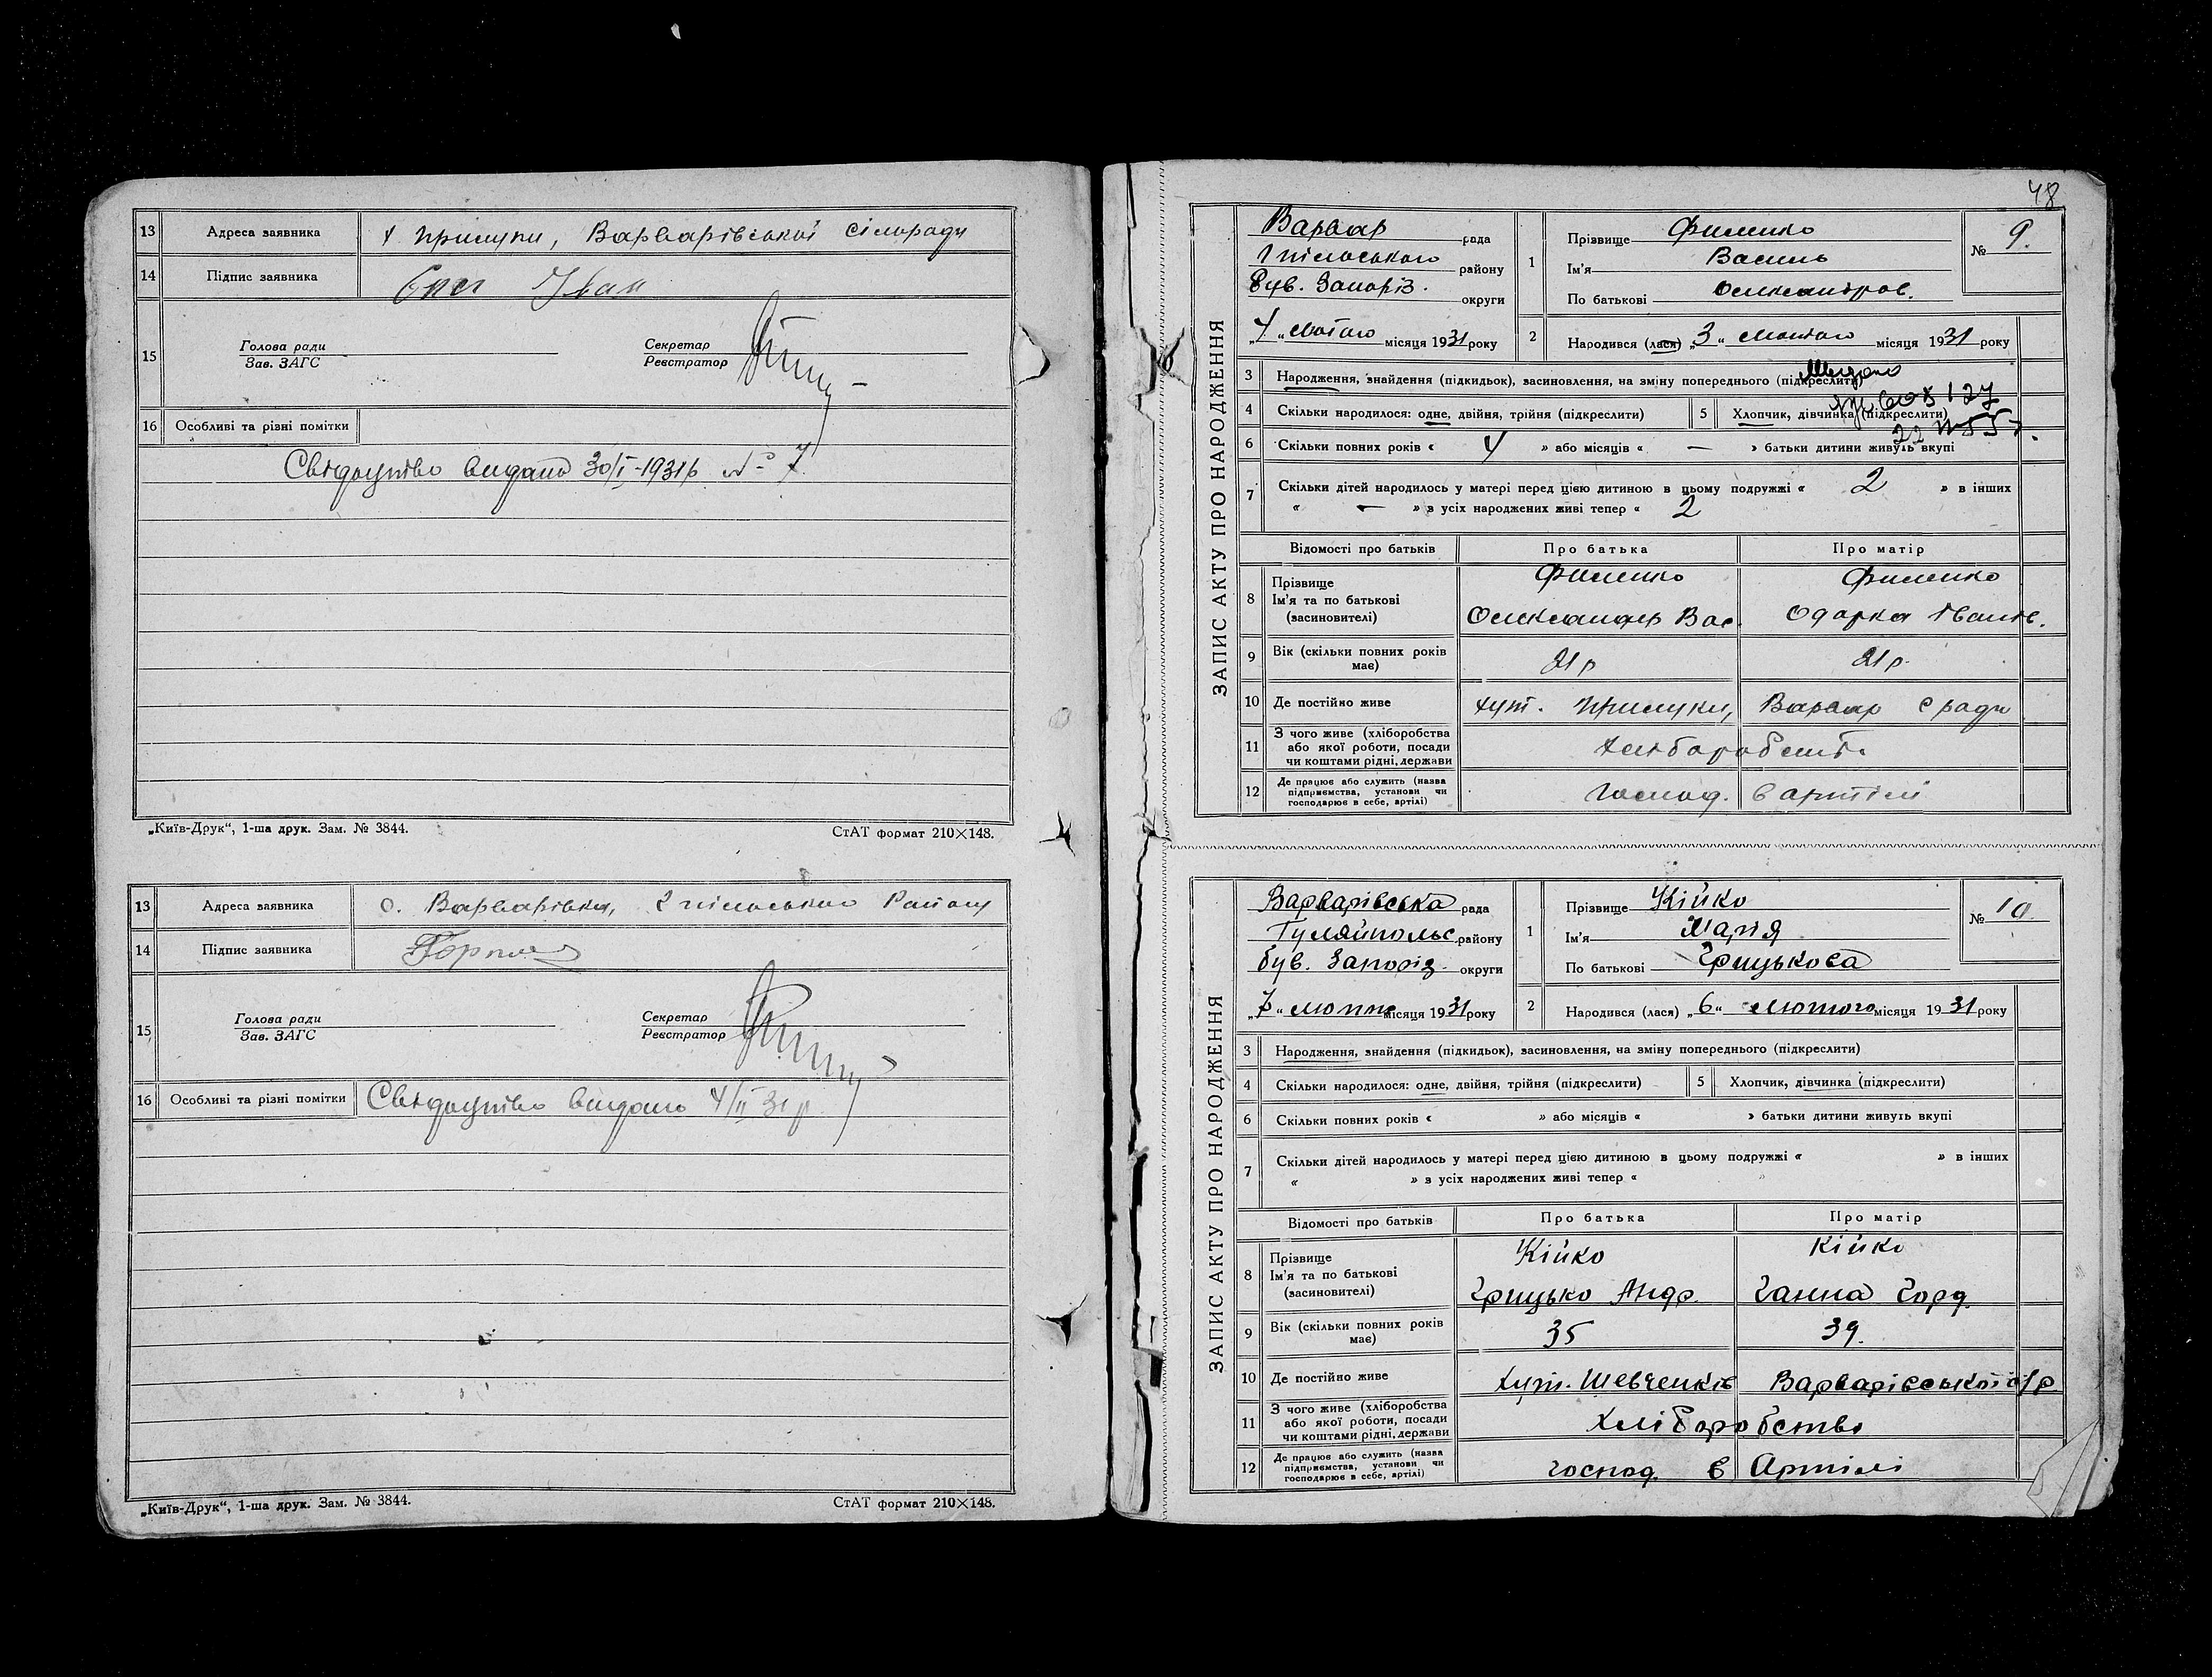 13 Адреса заявника х Прилуки, Варварівської сільради
14 Підпис заявника Іван
15 Голова ради
Зав. ЗАГС
Секретар
Реєстратор
16 Особливі та різні помітки
Свідоцтво видано 30/I-1931р № 7
„Київ-Друк“, 1-ша друк. Зам. № 3844. СтАТ формат 210×148.
13 Адреса заявника с. Варварівка, Гпільського Району
14 Підпис заявника
15 Голова ради
Зав. ЗАГС
Секретар
Реєстратор
16 Особливі та різні помітки Свідоцтво видано 4/II 31 р
„Київ-Друк“, 1-ша друк. Зам. № 3844. СтАТ формат 210×148.
48
ЗАПИС АКТУ ПРО НАРОДЖЕННЯ
Варвар рада
Гпільського району
Був. Запоріз. округи
„4“ Лютого місяця 1931 року
1 Прізвище Филенко
Ім'я Василь
По батькові Олександров.
№ 9.
2 Народився (лася) „3“ Лютого місяця 1931 року
3 Народження, знайдення (підкидьок), засиновлення, на зміну попереднього (підкреслити)
4 Скільки народилося: одне, двійня, трійня (підкреслити) 5 Хлопчик, дівчинка (підкреслити)
6 Скільки повних років « 4 » або місяців « — » батьки дитини живуть вкупі
7 Скільки дітей народилось у матері перед цією дитиною в цьому подружжі « 2 » в інших
« — » з усіх народжених живі тепер « 2
Відомості про батьків Про батька Про матір
8 Прізвище
Ім'я та по батькові
(засиновителі)
Филенко Филенко
Олександр Вас. Одарка Іванів.
9 Вік (скільки повних років має) 21 р 21 р.
10 Де постійно живе хут. Прилуки, Варвар с ради
11 З чого живе (хліборобства або якої роботи, посади чи коштами рідні, держави хліборобств.
12 Де працює або служить (назва підприємства, установи чи господарює в себе, артілі) господ. в артілі
ЗАПИС АКТУ ПРО НАРОДЖЕННЯ
Варварівська рада
Гуляйпольс. району
був. Запоріз. округи
„7“ лютого місяця 1931 року
1 Прізвище Кійко
Ім'я Марія
По батькові Грицькова
№ 10
2 Народився (лася) „6“ Лютого місяця 1931 року
3 Народження, знайдення (підкидьок), засиновлення, на зміну попереднього (підкреслити)
4 Скільки народилося: одне, двійня, трійня (підкреслити) 5 Хлопчик, дівчинка (підкреслити)
6 Скільки повних років « » або місяців « » батьки дитини живуть вкупі
7 Скільки дітей народилось у матері перед цією дитиною в цьому подружжі « » в інших
« » з усіх народжених живі тепер «
Відомості про батьків Про батька Про матір
8 Прізвище
Ім'я та по батькові
(засиновителі)
Кійко Кійко
Грицько Андр. Ганна Горд.
9 Вік (скільки повних років має) 35 39.
10 Де постійно живе хут. Шевченків Варварівської с/р
11 З чого живе (хліборобства або якої роботи, посади чи коштами рідні, держави хліборобство
12 Де працює або служить (назва підприємства, установи чи господарює в себе, артілі) господ. в Артілі